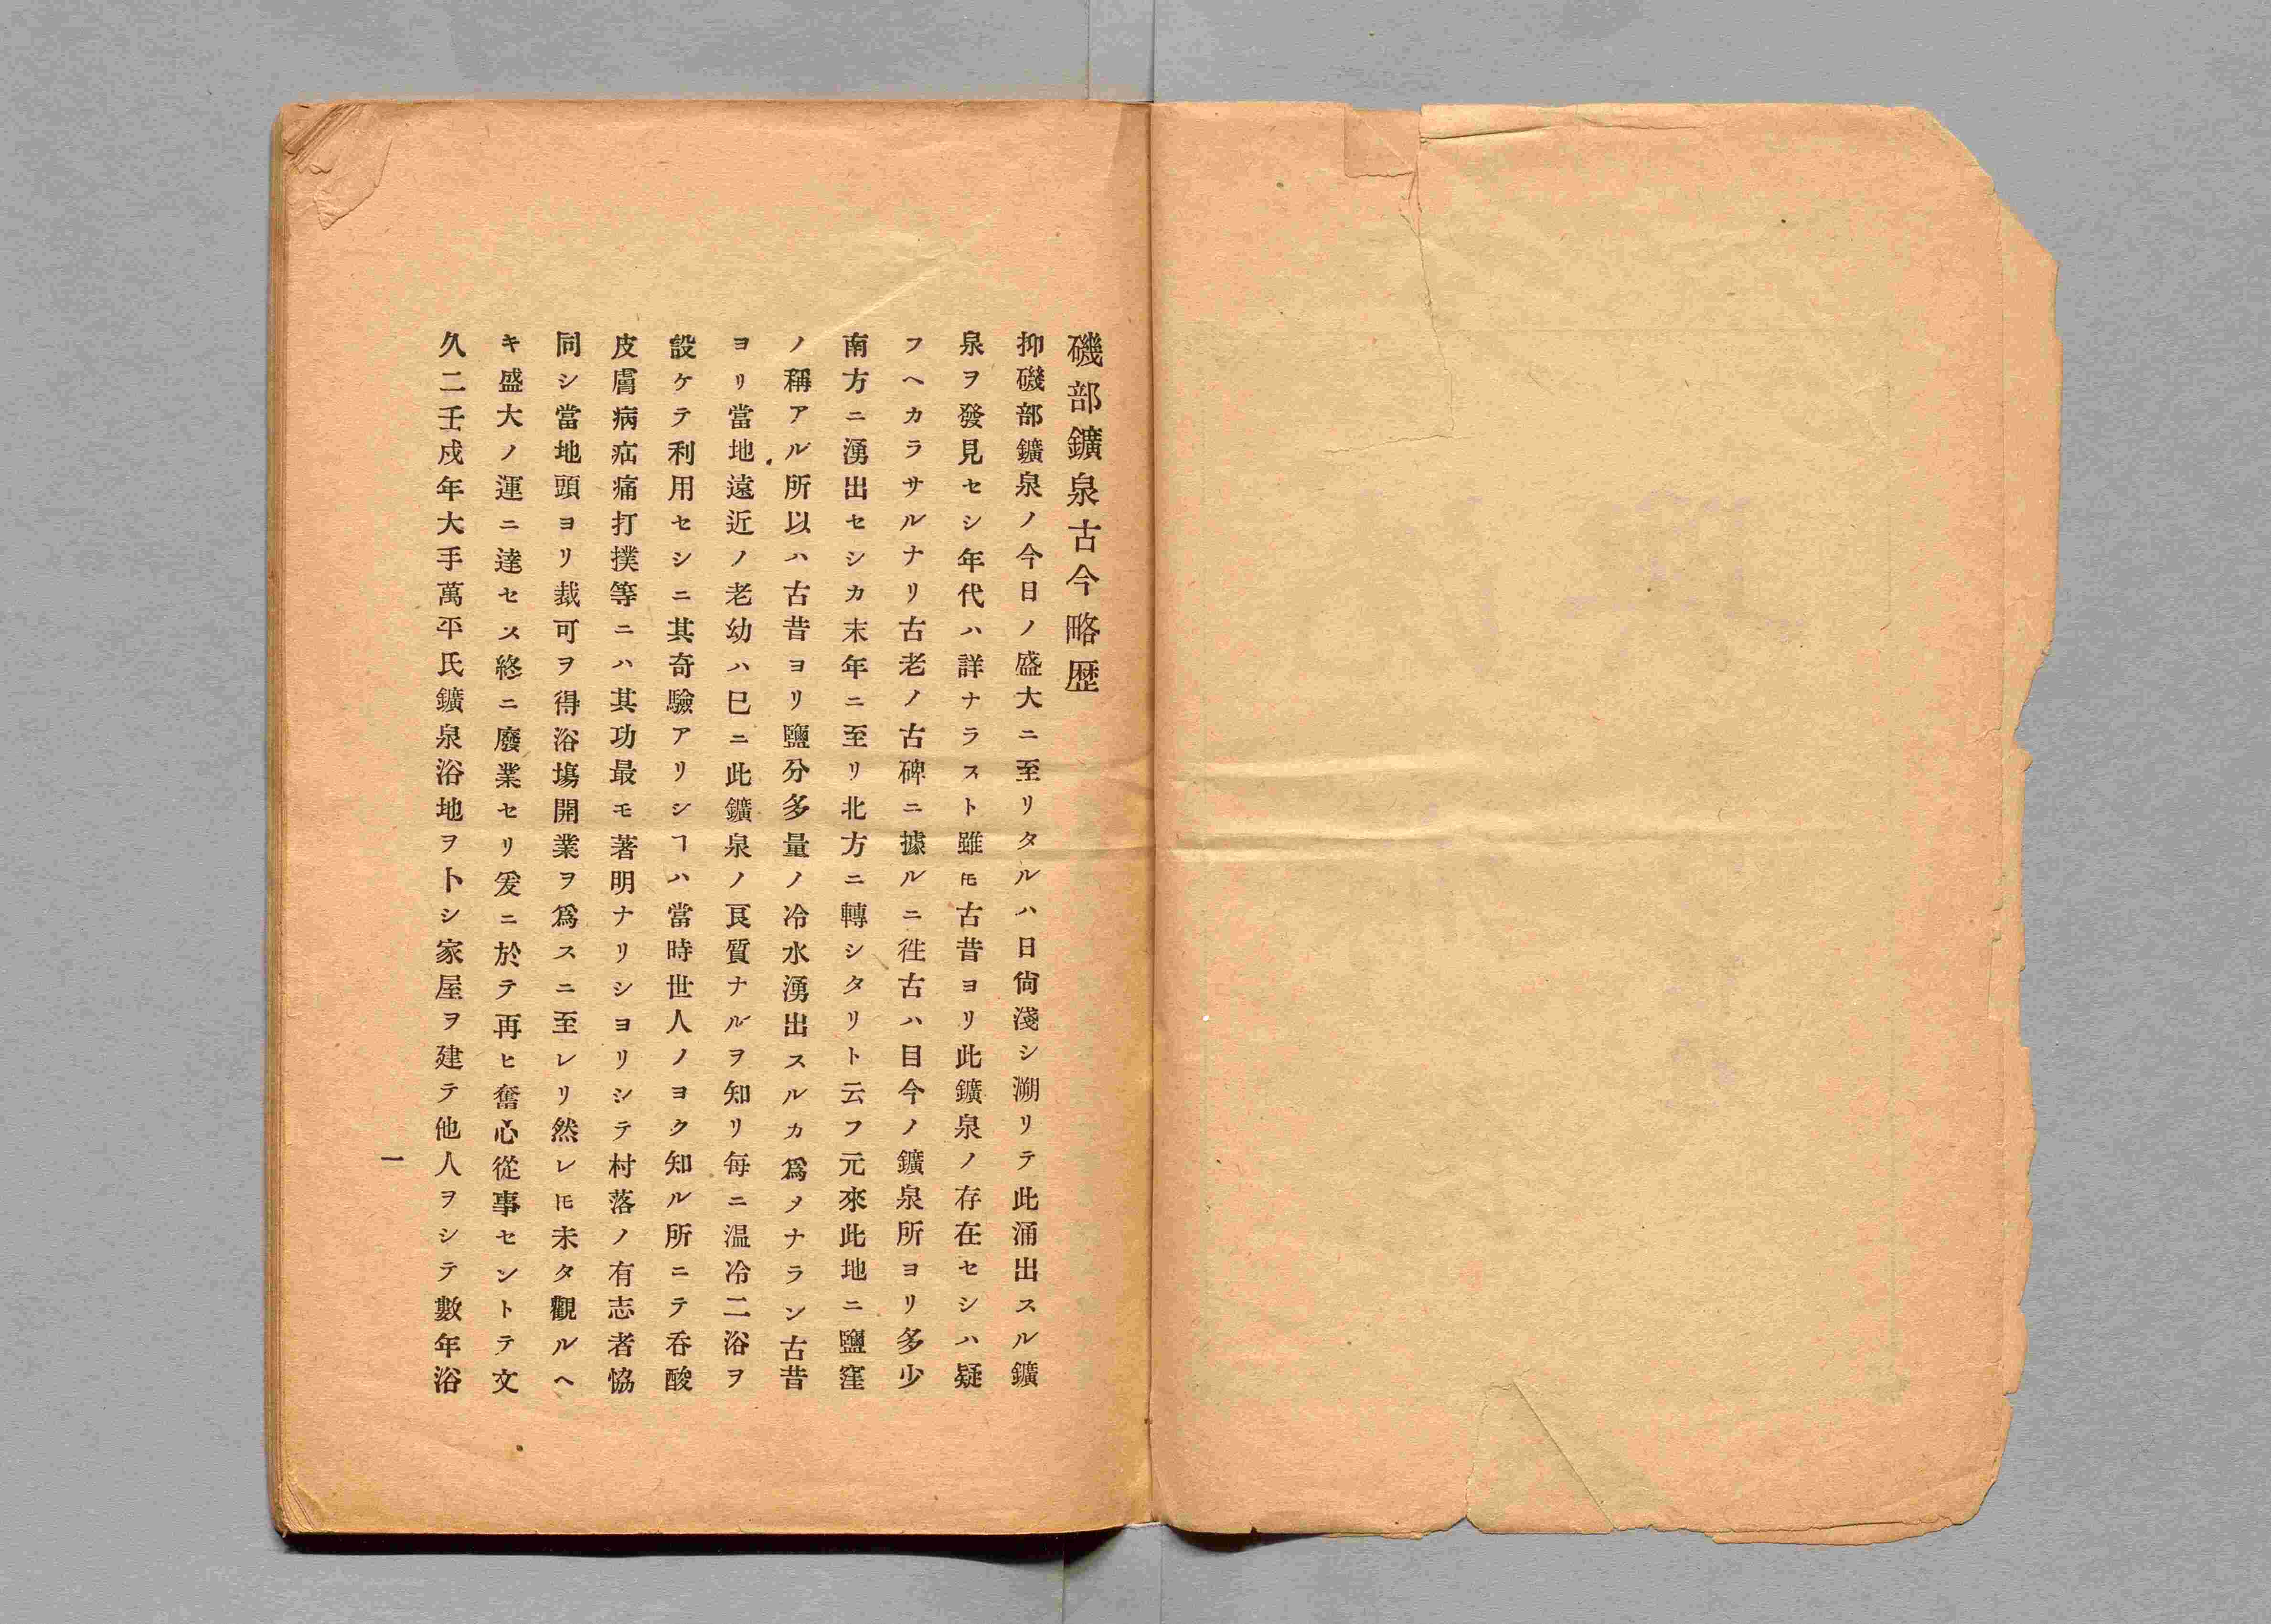 磯部鑛泉古今略歴
抑磯部鑛泉ノ今日ノ盛大ニ至リタルハ日尙淺シ溯リテ此涌出スル鑛
泉ヲ發見セシ年代ハ詳ナラスト雖𪜈古昔ヨリ此鑛泉ノ存在セシハ疑
フヘカラサルナリ古老ノ古碑ニ據ルニ徃古ハ目今ノ鑛泉所ヨリ多少
南方ニ湧出セシカ末年ニ至リ北方ニ轉シタリト云フ元來此地ニ鹽窪
ノ稱アル所以ハ古昔ヨリ鹽分多量ノ冷水湧出スルカ爲メナラン古昔
ヨリ當地遠近ノ老幼ハ巳ニ此鑛泉ノ良質ナルヲ知リ每ニ温冷二浴ヲ
設ケテ利用セシニ其奇驗アリシヿハ當時世人ノヨク知ル所ニテ呑酸
皮膚病疝痛打撲等ニハ其功最モ著明ナリシヨリシテ村落ノ有志者恊
同シ當地頭ヨリ裁可ヲ得浴塲開業ヲ爲スニ至レリ然レ𪜈未タ觀ルヘ
キ盛大ノ運ニ達セス終ニ廢業セリ爰ニ於テ再ヒ奮心從事セントテ文
久二壬戍年大手萬平氏鑛泉浴地ヲ卜シ家屋ヲ建テ他人ヲシテ數年浴
一